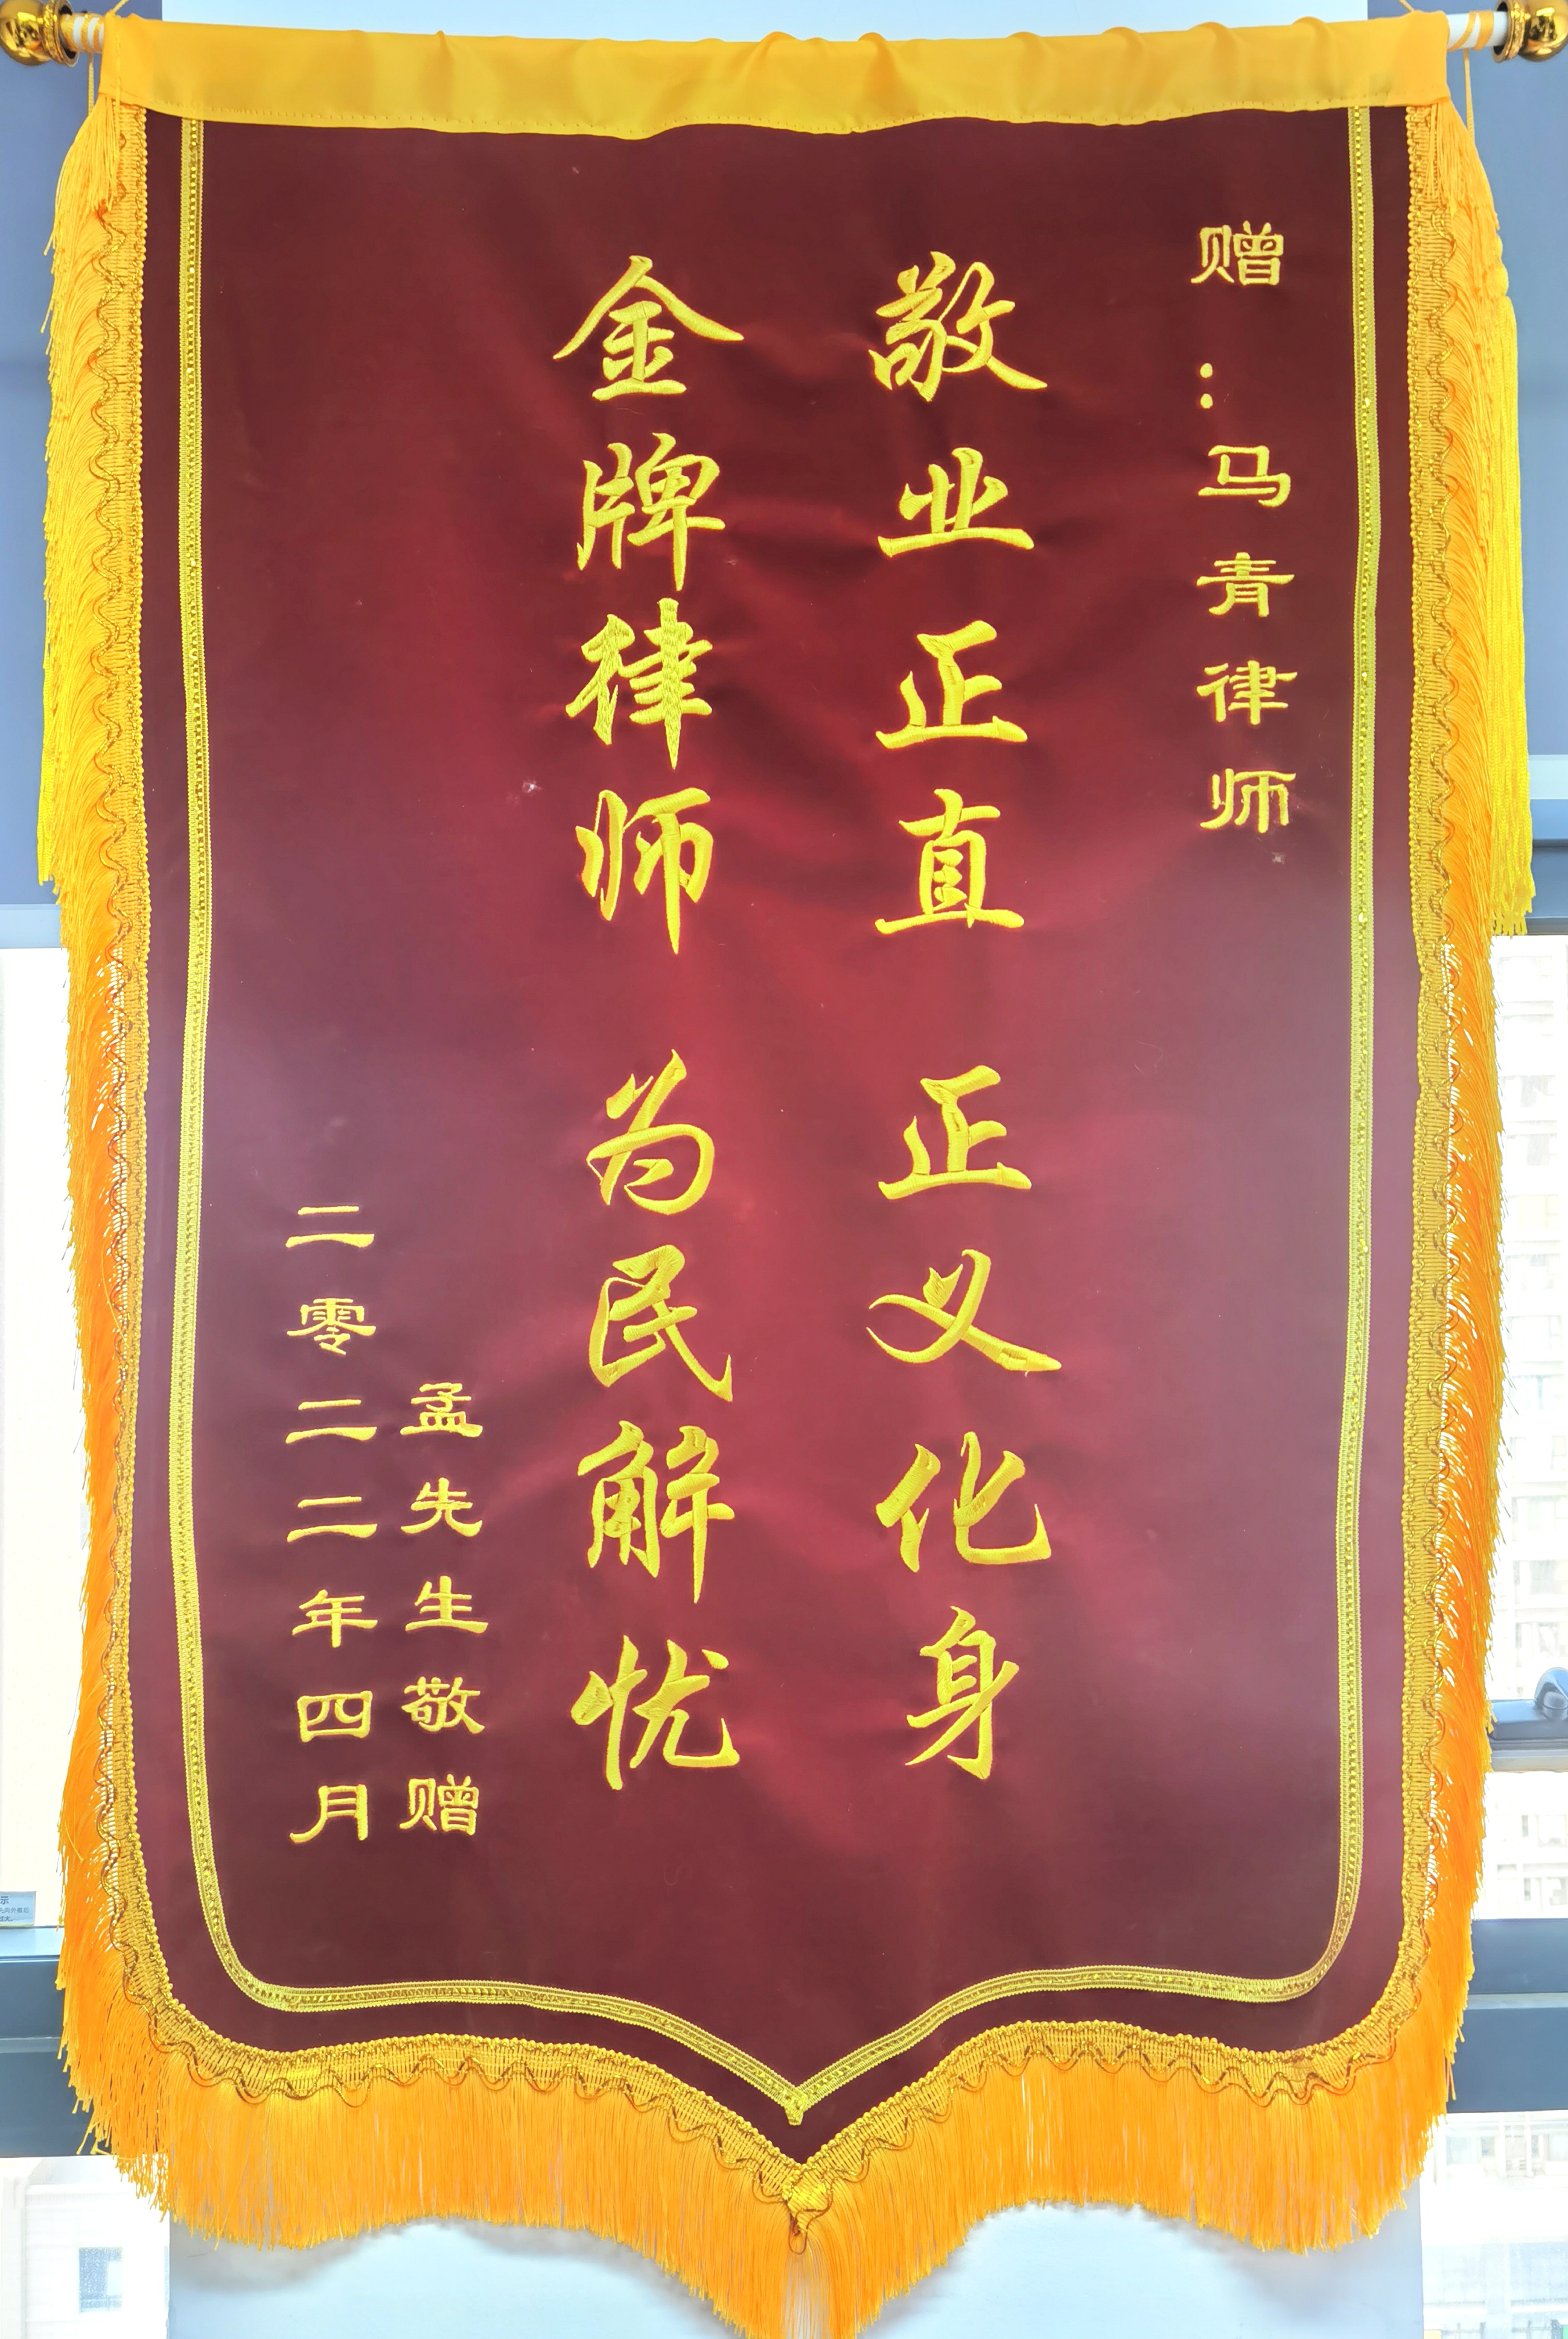 赠：马青律师
敬业正直 正义化身
金牌律师 为民解忧
孟先生敬赠
二零二二年四月